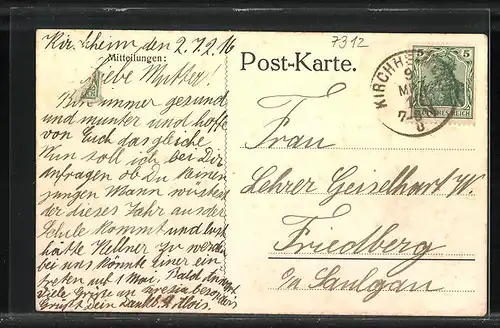 7312
Kirchheim den 2.7.2.16
Mitteilungen:
Liebe Mutter!
Bin immer gesund
und munter und hoffe
von Euch das gleiche
Nun soll ich bei Dir
anfragen ob Du keinen
jungen Mann wüstest
der dieses Jahr aus der
Schule kommt und lust
hätte Kellner zu werden
bei uns könnte Einer ein
treten auf 1 Mai. Bald
viele Grüße an Kreszia besonders
Grüßt dein dankb. Alois.
Post-Karte.
KIRCHH
5 5
DEUTSCHES REICH
Frau
Lehrer Geiselhart W.
Friedberg
Saulgau